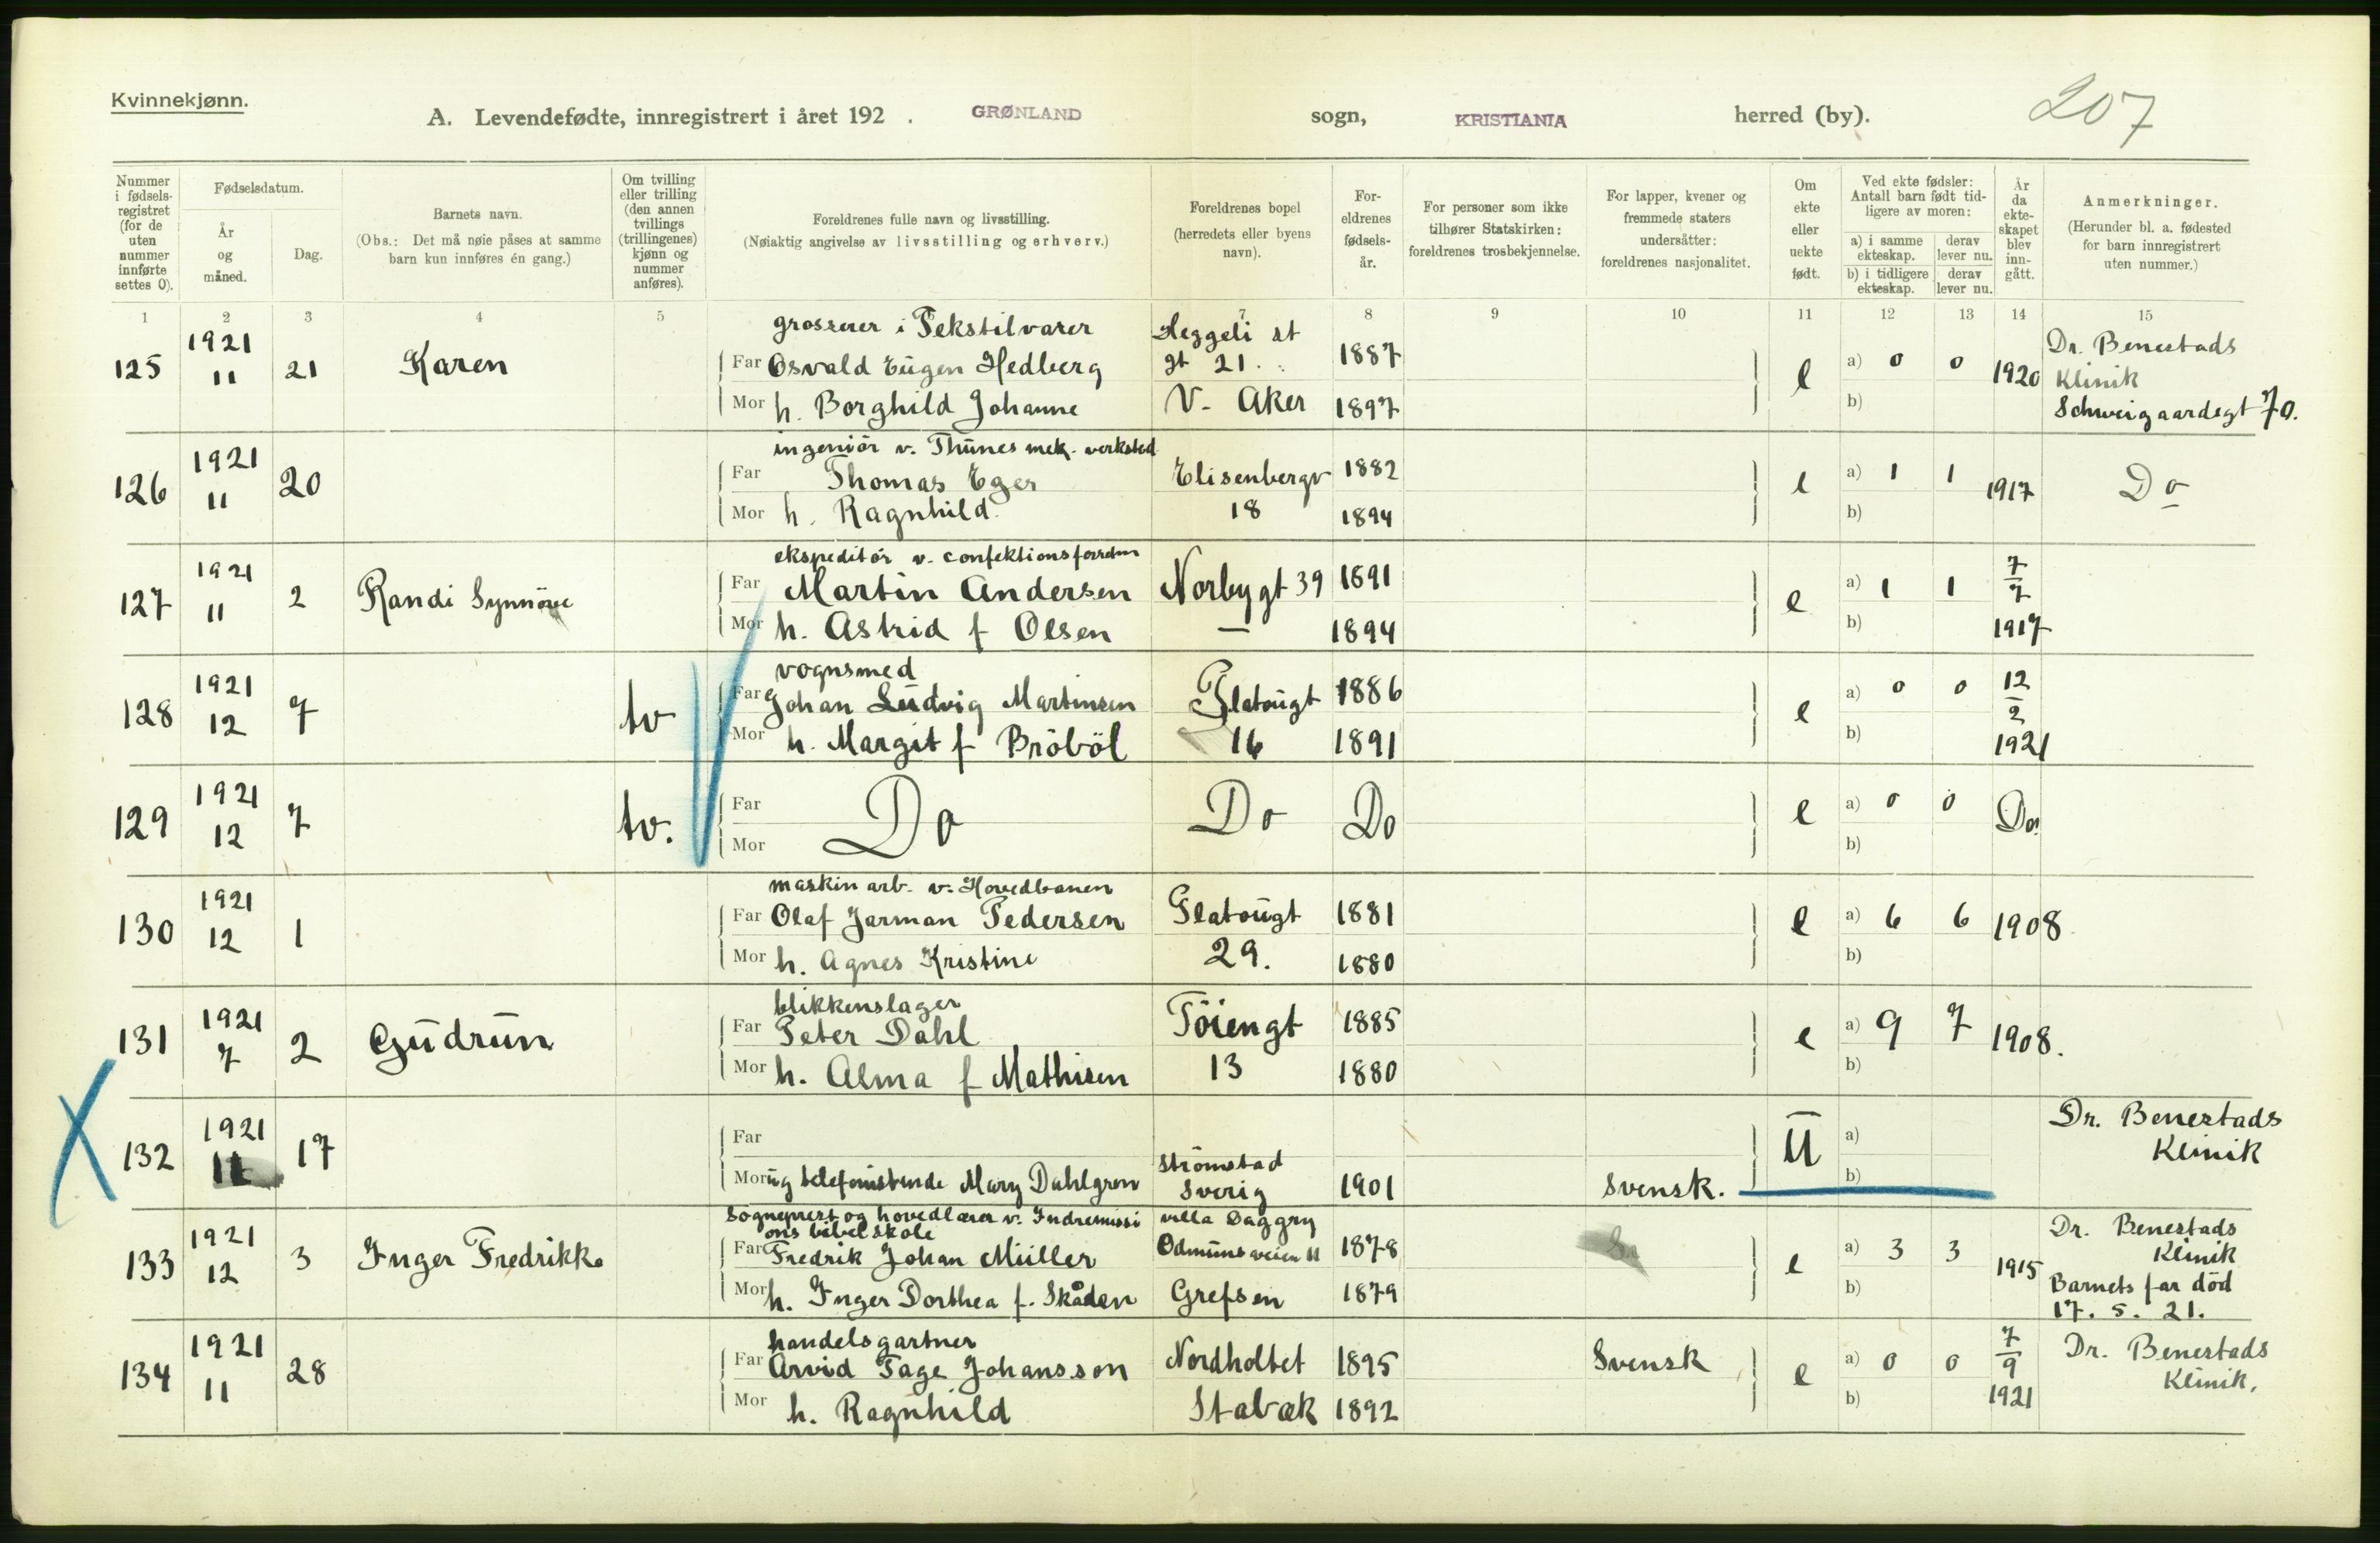 Kvinnekjønn.
A. Levendefødte, innregistrert i året 192 . GRØNLAND sogn, KRISTIANIA herred (by). 207
Nummer i fødselsregistret (for de uten nummer innførte settes 0).
Fødselsdatum.
År og måned.
Dag.
Barnets navn.
(Obs.: Det må nøie påses at samme barn kun innføres én gang.)
Om tvilling eller trilling (den annen tvillings (trillingenes) kjønn og nummer anføres).
Foreldrenes fulle navn og livsstilling.
(Nøiaktig angivelse av livsstilling og erhverv.)
Foreldrenes bopel (herredets eller byens navn).
Foreldrenes fødselsår.
For personer som ikke tilhører Statskirken: foreldrenes trosbekjennelse.
For lapper, kvener og fremmede staters undersåtter: foreldrenes nasjonalitet.
Om ekte eller uekte født.
Ved ekte fødsler: Antall barn født tidligere av moren:
a) i samme ekteskap. derav lever nu.
b) i tidligere ekteskap. derav lever nu.
År da ekteskapet blev inngått.
Anmerkninger.
(Herunder bl. a. fødested for barn innregistrert uten nummer.)
1 2 3 4 5 7 8 9 10 11 12 13 14 15
grosserer i Tekstilvarer Heggeli st Dr. Benestads
125 1921 11 21 Karen Far Osvald Eugen Hedberg gt 21. 1887 e a) 0 0 1920 Klinik
Mor h. Borghild Johanne V. Aker 1897 b) Schweigaardsgt 70.
ingeniør v. Thunes mek. verksted
126 1921 11 20 Far Thomas Eger Elisenbergv 1882 e a) 1 1 1917 Do
Mor h. Ragnhild 18 1894 b)
ekspeditør v. confektionsforretn
127 1921 11 2 Randi Synnøve Far Martin Andersen Norbygt 39 1891 e a) 1 1 7/7 1917
Mor h. Astrid f Olsen — 1894 b)
vognsmed
128 1921 12 7 tv Far Johan Ludvig Martinsen Platougt 1886 e a) 0 0 12/2 1921
Mor h. Margit f Bröböl 16 1891 b)
129 1921 12 7 tv. Far Do Do Do e a) 0 0 Do
Mor b)
maskinarb. v. Hovedbanen
130 1921 12 1 Far Olaf Jarman Pedersen Platougt 1881 e a) 6 6 1908
Mor h. Agnes Kristine 29. 1880 b)
blikkenslager
131 1921 7 2 Gudrun Far Peter Dahl Töiengt 1885 e a) 9 7 1908.
Mor h. Alma f Mathisen 13 1880 b)
132 1921 11 17 Far U a) Dr. Benestads Klinik
Mor ug telefonistinde Mary Dahlgren Strömstad Sverig 1901 Svensk. b)
Sogneprest og hovedlærer v. Indremissions bibelskole villa Daggry
133 1921 12 3 Inger Fredrikke Far Fredrik Johan Müller Odmunsveien 11 1878 e a) 3 3 1915 Dr. Benestads Klinik
Mor h. Inger Dorthea f. Skåden Grefsen 1879 b) Barnets far död 17. 5. 21.
handelsgartner
134 1921 11 28 Far Arvid Tage Johansson Nordholtet 1895 Svensk e a) 0 0 7/9 1921 Dr. Benestads Klinik,
Mor h. Ragnhild Stabæk 1892 b)